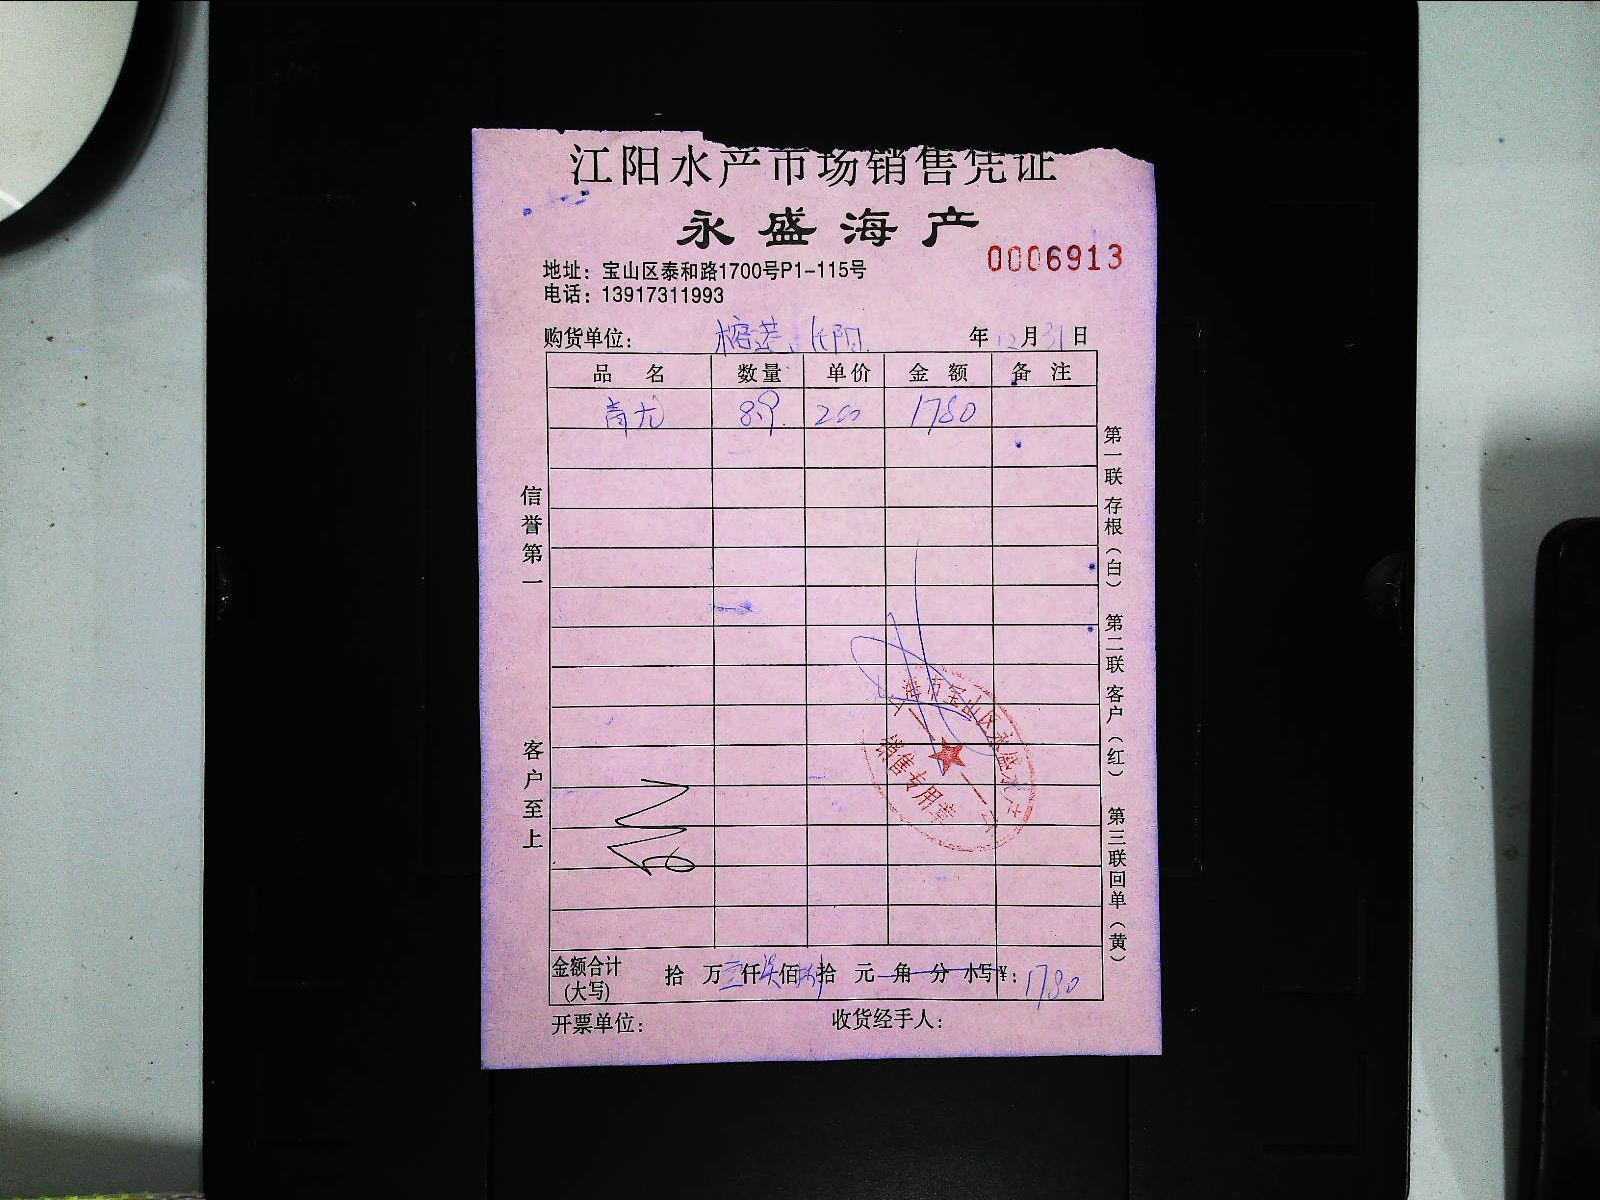 江阳水产市场销售凭证
永盛海产
0006913
地址：宝山区泰和路1700号P1-115号
电话：13917311993
购货单位： 年12月31日
品名 数量 单价 金额 备注
青尤 8.9 200 1780
信誉第一
客户至上
第一联 存根（白） 第二联 客户（红） 第三联 回单（黄）
宝山区永盛水产
销售专用章
金额合计 拾 万 仟 佰 拾 元 角 分 小写¥：1780
（大写）
开票单位： 收货经手人：